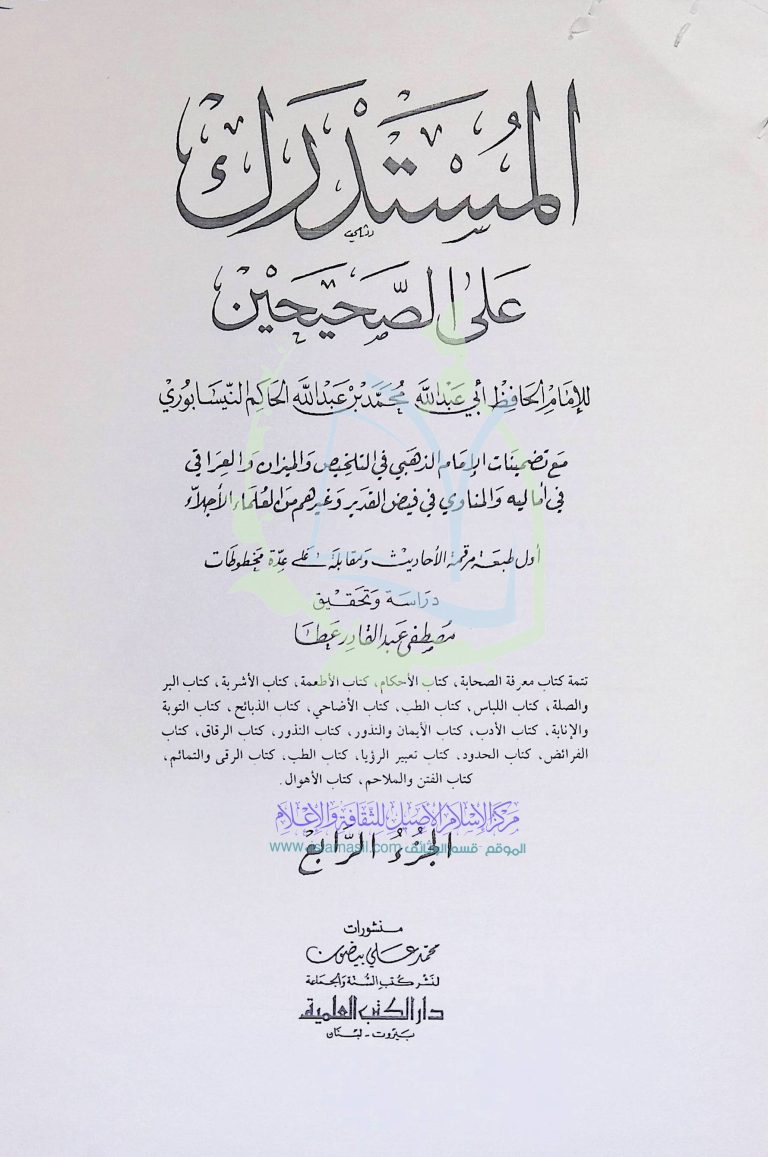 المُسْتَدْرَك
عَلَى الصَّحِيحَيْن
للإمَامِ الحَافِظ أَبي عَبْد اللَّه مُحَمَّد بْن عَبْد اللَّه الحَاكِم النَّيسَابُوريْ
مَع تضمينَات الإمَام الذهَبي في التلخيص والميزان وَالعِرَاقي
في أماليه وَالمناوي في فيض القدير وَغيرهم مِن العُلمَاء الأجلاء
أول طبعَة مرقمة الأحاديث ومقابلة على عِدّة مخطوطات
دراسَة وَتحقيق
مصطفى عبد القادر عطا
تتمة كتاب معرفة الصحابة، كتاب الأحكام، كتاب الأطعمة، كتاب الأشربة، كتاب البر
والصلة، كتاب اللباس، كتاب الطب، كتاب الأضاحي، كتاب الذبائح، كتاب التوبة
والإنابة، كتاب الأدب، كتاب الأيمان والنذور، كتاب النذور، كتاب الرقاق، كتاب
الفرائض، كتاب الحدود، كتاب تعبير الرؤيا، كتاب الطب، كتاب الرقى والتمائم،
كتاب الفتن والملاحم، كتاب الأهوال.
مركز الإسلام الأصيل للثقافة والإعلام
الموقع - قسم الوثائق www.islamasil.com
الجُزُءُ الرَّابِعْ
منشورات
محمد علي بيضون
لنَشْر كُتبِ السُّنَّة وَالجمَاعَة
دار الكتب العلمية
بَيْرُوت - لبْنان